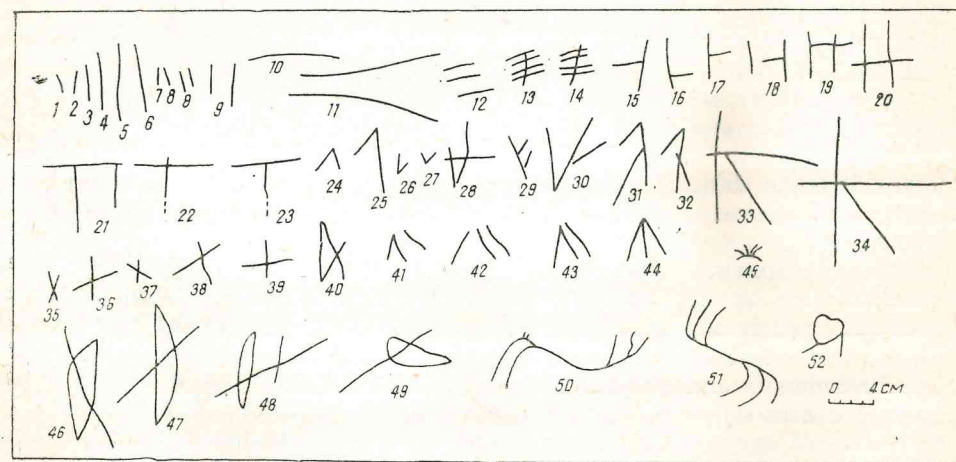 1 2 3 4 5 6 7 8 8 9 10 11 12 13 14 15 16 17 18 19 20
21 22 23 24 25 26 27 28 29 30 31 32 33 34
35 36 37 38 39 40 41 42 43 44 45
46 47 48 49 50 51 52
0 4 см